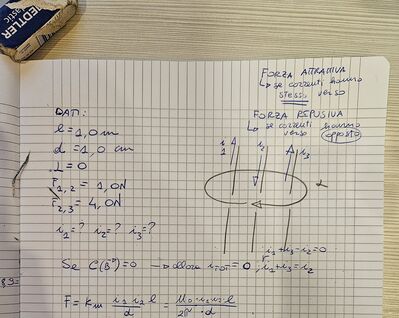 STAEDTLER
FORZA ATTRATTIVA
↳ se correnti hanno
stesso verso
FORZA REPULSIVA
↳ se correnti hanno
verso opposto
DATI:
l = 1,0 m
d = 1,0 cm
F₁,₂ = 1,0N
F₂,₃ = 4,0N
i₁ = ? i₂ = ? i₃ = ?
i₁ i₂ i₃
i₁+i₃-i₂=0
Se C(B)=0 → allora iTOT = 0, i₁+i₃=i₂
F = Km i₁ i₂ l / d = μ₀ · i₁ i₂ l / 2π · d